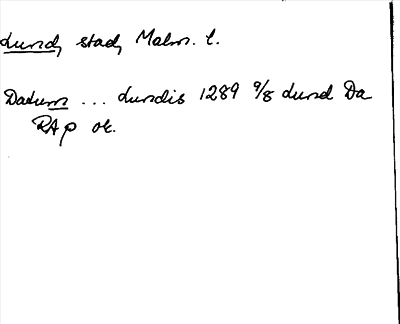 Lund, stad, Malm. l.
Datum ... Lundis 1289 9/8 Lund Da
RAp or.